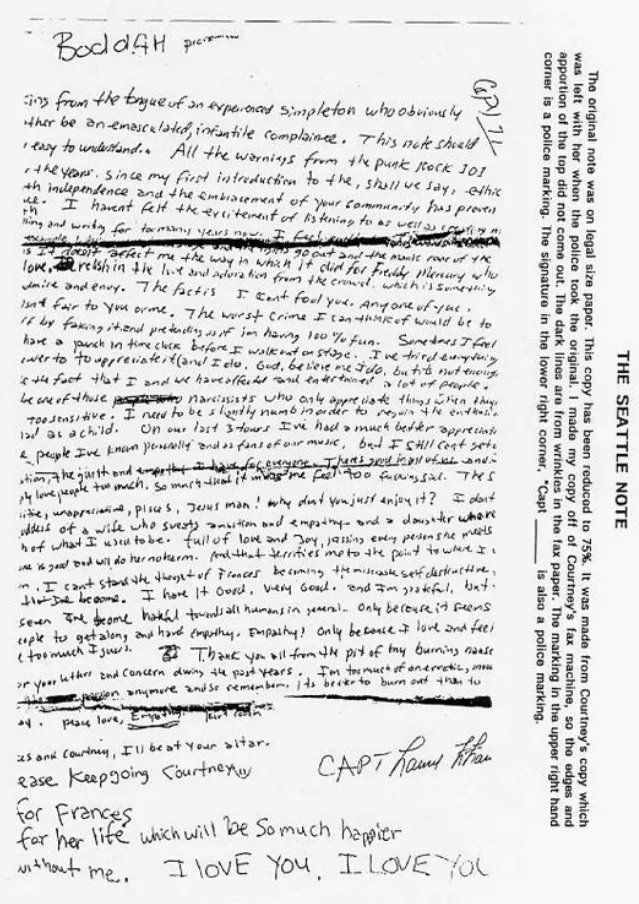 BoddAH
ing from the tongue of an experienced simpleton who obviously
ther be an emasculated, infantile complainee. This note should
easy to understand. All the warnings from the punk Rock 101
the years. Since my first introduction to the, shall we say, ethic
th independence and the embracement of your community has proven
ue. I havent felt the excitement of listening to as well as creating m
th
ing and writing for too many years now. I feel
go out and the manic roar of the
It doesnt affect me the way in which it did for freddy Mercury who
love, relish in the love and adoration from the crowd. which is something
dmire and envy. The fact is I cant fool you. Anyone of you.
isnt fair to you or me. The worst crime I can think of would be to
ff by faking it and pretending as if im having 100% fun. Sometimes I feel
have a punch in time clock before I walk out on stage. I've tried everything
ower to to appreciate it (and I do. God, believe me I do, but its not enoug
the fact that I and we have affected and entertained a lot of people.
be one of those narcissists who only appreciate things when they
too sensitive. I need to be slightly numb in order to regain the enthusia
had as a child. On our last 3 tours I've had a much better appreciati
people I've known personally and as fans of our music, but I still cant get o
tion, the guilt and empathy I have for everyone. Theres good in all of us and i
ply love people too much. so much that it makes me feel too fucking sad. The s
itive, unappreciative, pisces, Jesus man! why dont you just enjoy it? I dont
oddess of a wife who sweats ambition and empathy. and a daughter who re
h of what I used to be. full of love and Joy, kissing every person she meets
one is good and will do her no harm. And that terrifies me to the point to where I c
n. I cant stand the thought of Frances becoming the miserable self destructive,
that Ive become. I have it Good, very Good. and Im grateful, but.
seven Ive become hateful towards all humans in general.. Only because it seems
eople to get along and have empathy. Empathy! Only because I love and feel
e too much I guess. Thank you all from the pit of my burning nause
or your letters and concern during the past years. I'm too much of an erratic, moo
passion anymore and so remember, its better to burn out than to
ay. peace love, Empathy.
es and Courtney, I'll be at your altar.
ease Keep going Courtney
CAPT
for Frances
for her life which will be so much happier
without me. I LOVE YOU, I LOVE YOU
THE SEATTLE NOTE
The original note was on legal size paper. This copy has been reduced to 75%. It was made from Courtney's copy which
was left with her when the police took the original. I made my copy off of Courtney's fax machine, so the edges and
apportion of the top did not come out. The dark lines are from wrinkles in the fax paper. The marking in the upper right hand
corner is a police marking. The signature in the lower right corner, "Capt _____ is also a police marking.